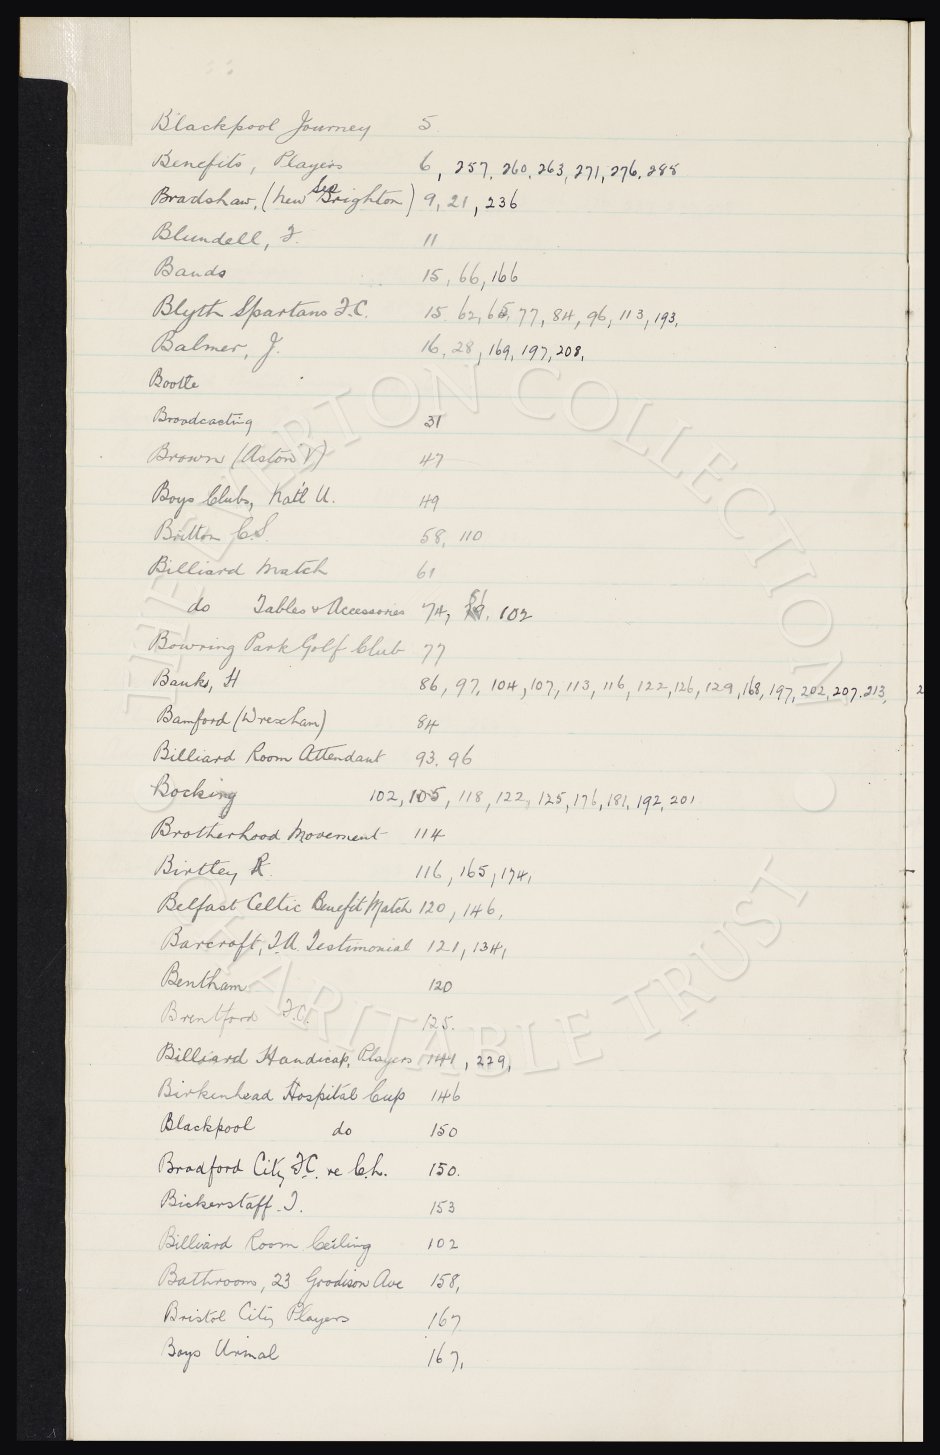 Blackpool Journey 5.
Benefits, Players 6, 257, 260, 263, 271, 276, 288
Bradshaw, (New Brighton) Sec 9, 21, 236
Blundell, J. 11
Bands 15, 66, 166
Blyth Spartans F.C. 15, 62, 65, 77, 84, 96, 113, 193,
Balmer, J. 16, 28, 169, 197, 208,
Bootle
Broadcasting 31
Brown (Aston V) 47
Boys Clubs, Nat'l U. 49
Britton C.S. 58, 110
Billiard Match 61
do Tables & Accessories 74, 81, 102
Bowring Park Golf Club 77
Banks, H 86, 97, 104, 107, 113, 116, 122, 126, 129, 168, 197, 202, 207, 213, 2
Bamford (Wrexham) 84
Billiard Room Attendant 93, 96
Bocking 102, 105, 118, 122, 125, 176, 181, 192, 201
Brotherhood Movement 114
Birtley, R. 116, 165, 174,
Belfast Celtic Benefit Match 120, 146,
Barcroft, T.A. Testimonial 121, 134,
Bentham 120
Brentford F.C. 125.
Billiard Handicap, Players 144, 229,
Birkenhead Hospital Cup 146
Blackpool do 150
Bradford City F.C. re C.h. 150.
Bickerstaff. J. 153
Billiard Room Ceiling 102
Bathroom, 23 Goodison Ave 158,
Bristol City Players 167
Boys Urinal 167,
THE EVERTON COLLECTION
CHARITABLE TRUST